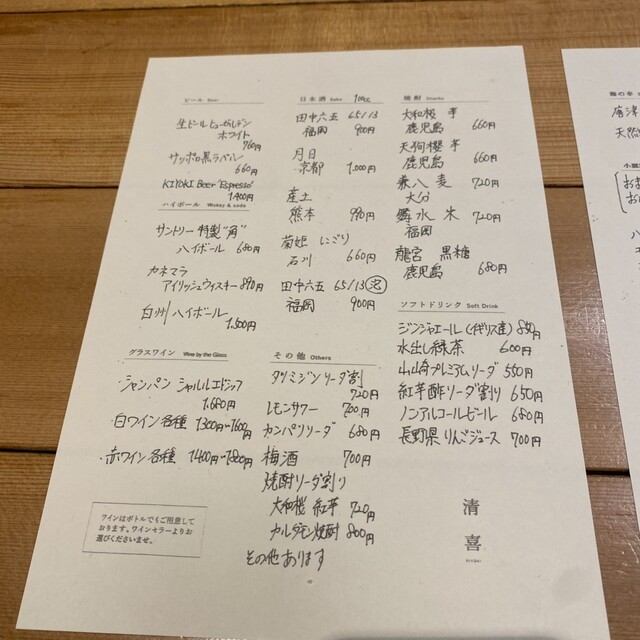 ビール Beer
生ビール ヒューガルデン
ホワイト
760円
サッポロ黒ラベル
660円
KIYOKI Beer "Espresso"
1,400円
ハイボール Wisky & soda
サントリー 特製"角"
ハイボール 680円
カネマラ
アイリッシュウィスキー 890円
白州ハイボール
1,500円
グラスワイン Wine by the Glass
・シャンパン シャルルエドシック
1,680円
・白ワイン各種 1300円〜1600円
・赤ワイン各種 1400円〜1800円
ワインはボトルでもご用意して
おります。ワインセラーよりお
選びくださいませ。
日本酒 Sake 100cc
田中六五 65/13
福岡 900円
月日
京都 1,000円
産土
熊本 990円
菊姫 にごり
石川 660円
田中六五 65/13
福岡 900円
その他 Others
タツミジンソーダ割
720円
レモンサワー 700円
カンパリソーダ 680円
梅酒 700円
焼酎ソーダ割り
大和桜 紅芋 720円
カルダモン焼酎 800円
その他あります
焼酎 Shochu
大和桜 芋
鹿児島 660円
天狗櫻 芋
鹿児島 660円
兼八 麦 720円
大分
水 米 720円
福岡
龍宮 黒糖
鹿児島 680円
ソフトドリンク Soft Drink
ジンジャエール(イギリス産) 850円
水出し緑茶 600円
山崎プレミアムソーダ 550円
紅芋酢ソーダ割り 650円
ノンアルコールビール 680円
長野県りんごジュース 700円
清
喜
唐津
天然